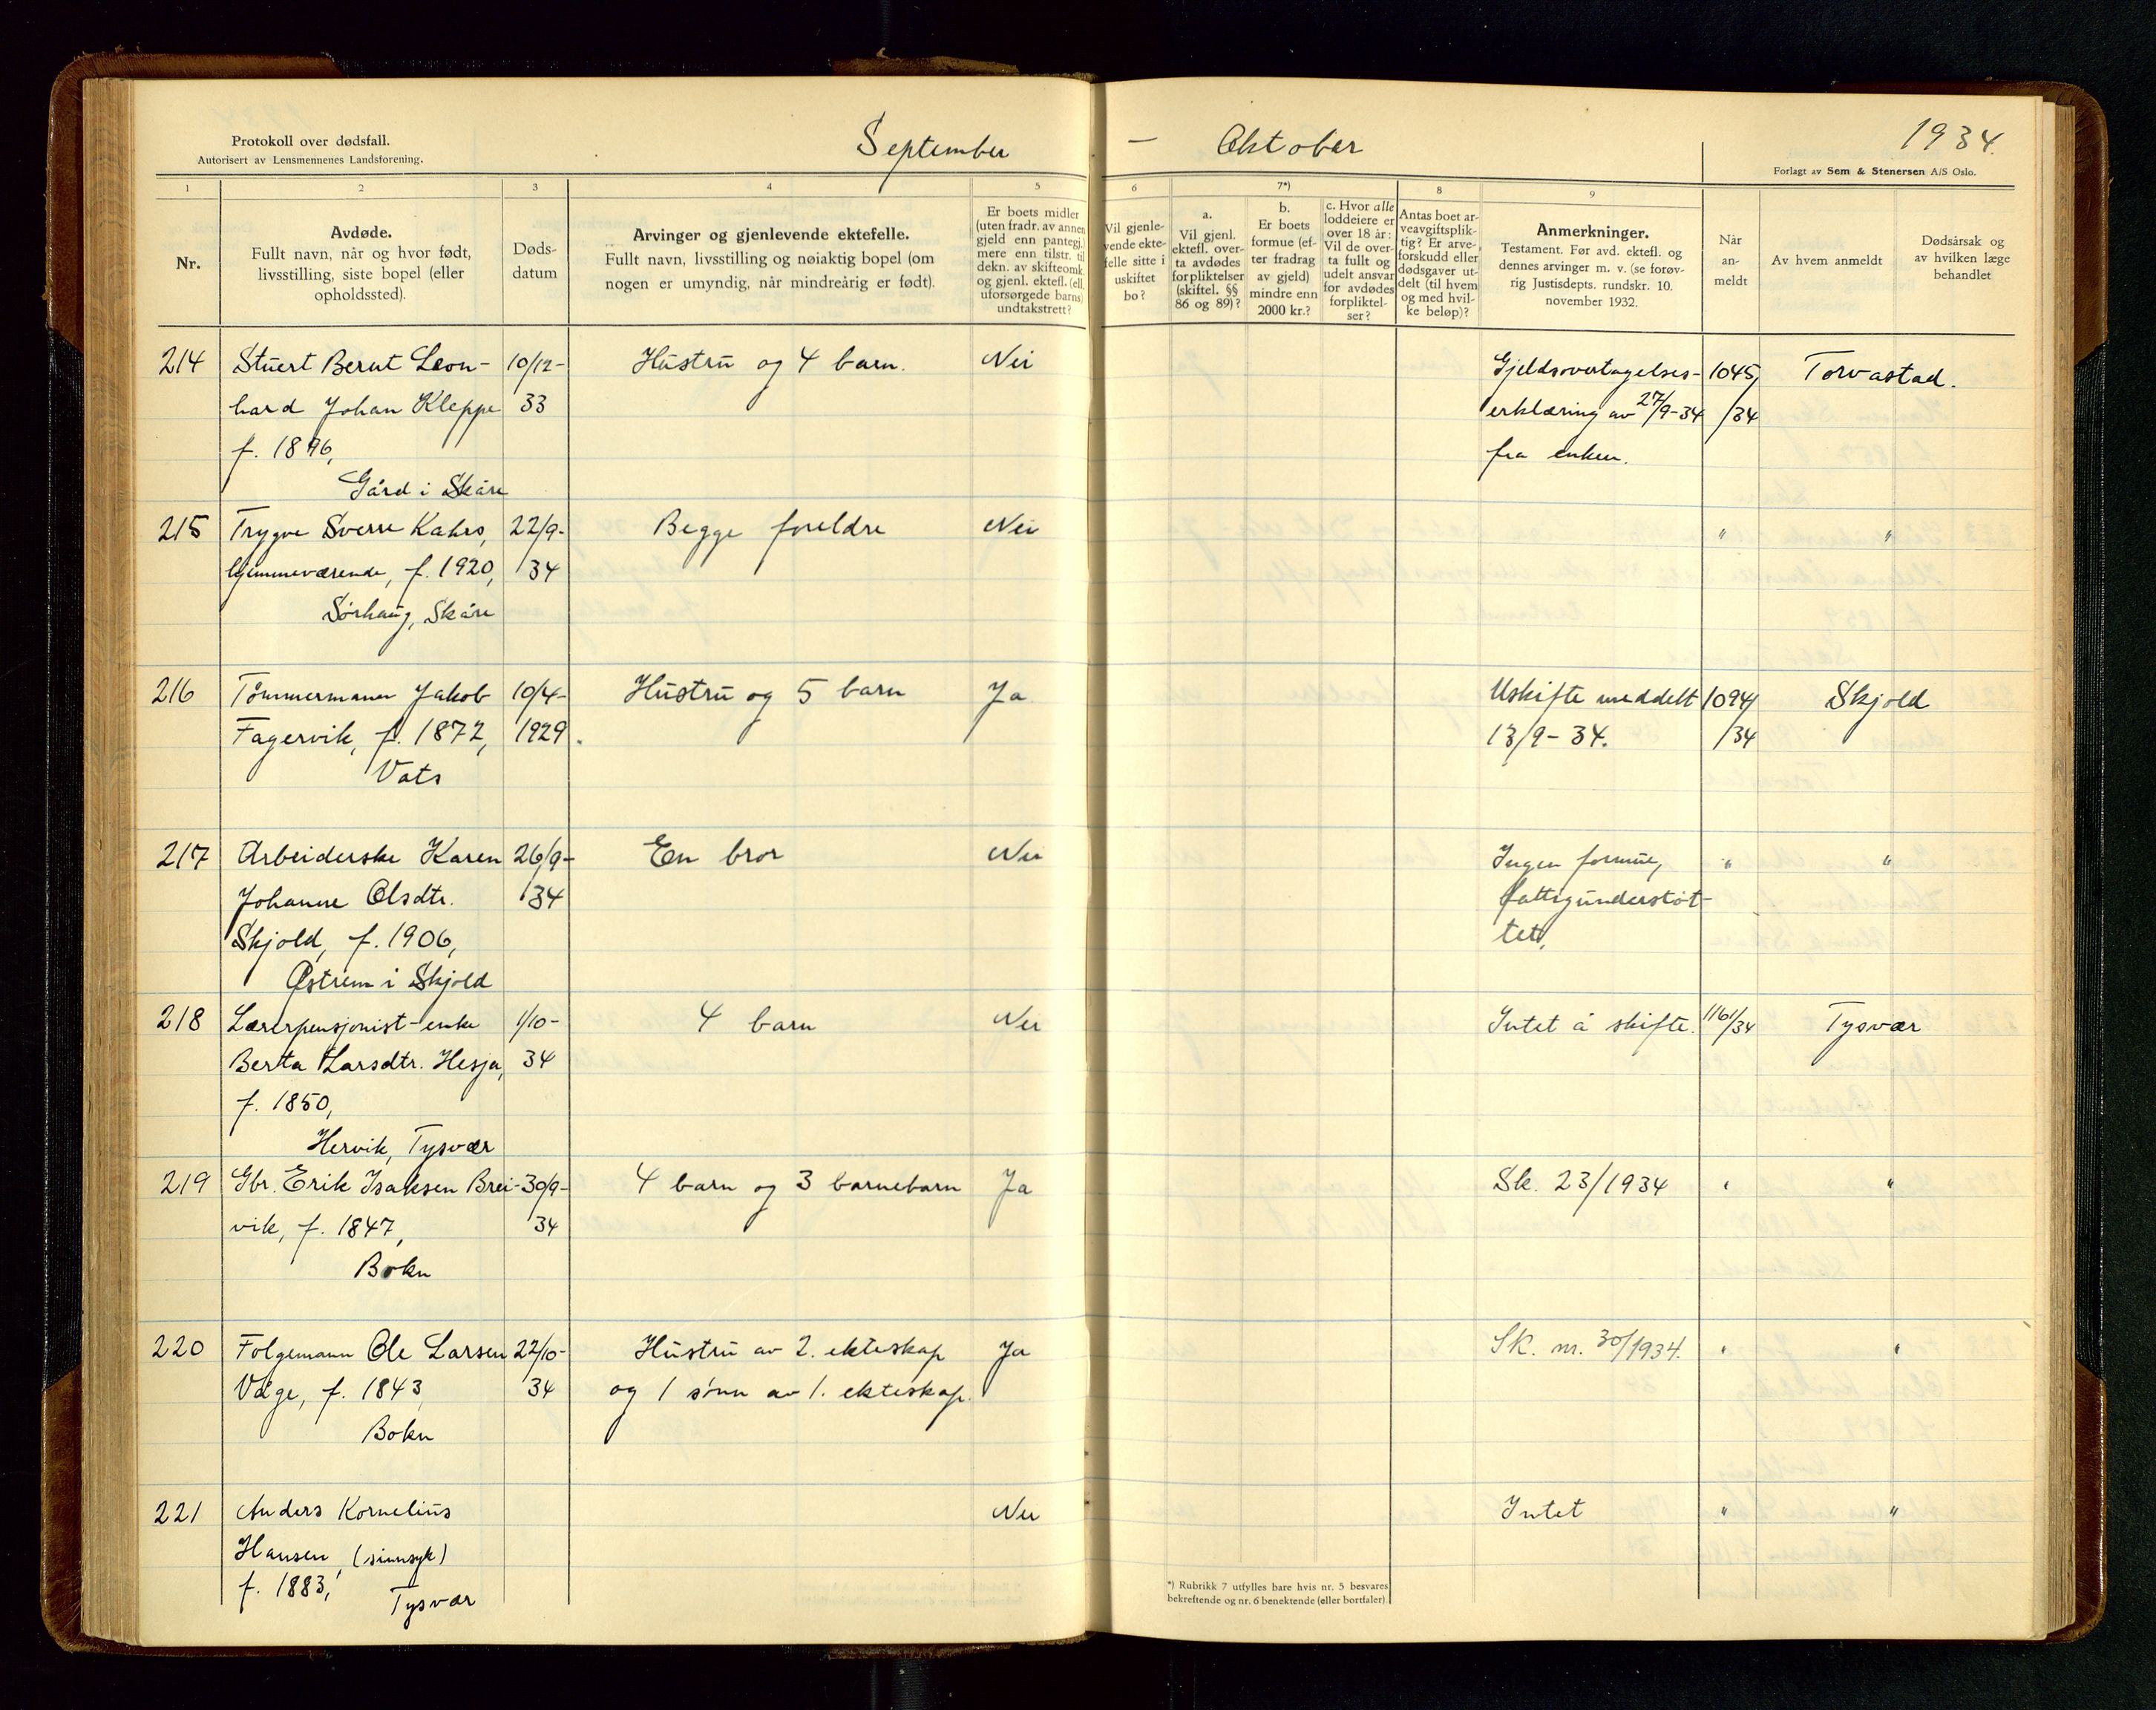 Protokoll over dødsfall.
Autorisert av Lensmennenes Landsforening.
September – Oktober 1934.
Forlagt av Sem & Stenersen A/S Oslo.
1 2 3 4 5 6 7*) 8 9
Nr.
Avdøde.
Fullt navn, når og hvor født,
livsstilling, siste bopel (eller
opholdssted).
Døds-
datum
Arvinger og gjenlevende ektefelle.
Fullt navn, livsstilling og nøiaktig bopel (om
nogen er umyndig, når mindreårig er født).
Er boets midler
(uten fradr. av annen
gjeld enn pantegj.)
mere enn tilstr. til
dekn. av skifteomk.
og gjenl. ektefl. (ell.
uforsørgede barns)
undtakstrett?
Vil gjenle-
vende ekte-
felle sitte i
uskiftet
bo?
a.
Vil gjenl.
ektefl. over-
ta avdødes
forpliktelser
(skiftel. §§
86 og 89)?
b.
Er boets
formue (ef-
ter fradrag
av gjeld)
mindre enn
2000 kr.?
c. Hvor alle
loddeiere er
over 18 år:
Vil de over-
ta fullt og
udelt ansvar
for avdødes
forpliktel-
ser?
Antas boet ar-
veavgiftsplik-
tig? Er arve-
forskudd eller
dødsgaver ut-
delt (til hvem
og med hvil-
ke beløp)?
Anmerkninger.
Testament. Før avd. ektefl. og
dennes arvinger m. v. (se forøv-
rig Justisdepts. rundskr. 10.
november 1932.
Når
an-
meldt
Av hvem anmeldt
Dødsårsak og
av hvilken læge
behandlet
214 Stuert Bernt Leon- 10/12- Hustru og 4 barn. Nei Gjeldsovertagelses- 1045/ Torvastad.
hard Johan Kleppe 33 erklæring av 27/9-34 /34
f. 1896, fra enken.
Gård i Skåre
215 Trygve Sverre Kahrs, 22/9- Begge foreldre Nei " "
hjemmeværende, f. 1920, 34
Sørhaug, Skåre
216 Tømmermann Jakob 10/4- Hustru og 5 barn Ja Uskifte meddelt 1094/ Skjold
Fagervik, f. 1872, 1929. 13/9-34. /34
Vats
217 Arbeiderske Karen 26/9- En bror Nei Ingen formue, " "
Johanne Olsdtr. 34 fattigunderstøt-
Skjold, f. 1906, tet,
Østrem i Skjold
218 Lærerpensjonist-enke 1/10- 4 barn Nei Intet å skifte. 1161/34 Tysvær
Berta Larsdtr. Hesja, 34
f. 1850,
Hervik, Tysvær
219 Gbr. Erik Isaksen Brei- 30/9- 4 barn og 3 barnebarn Ja Sk. 23/1934 " "
vik, f. 1847, 34
Bokn
220 Folgemann Ole Larsen 22/10- Hustru av 2. ekteskap Ja Sk. nr. 30/1934. " "
Våge, f. 1843, 34 og 1 sønn av 1. ekteskap.
Bokn
221 Anders Kornelius Nei Intet " "
Hansen, (sinnsyk)
f. 1883,
Tysvær
*) Rubrikk 7 utfylles bare hvis nr. 5 besvares
bekreftende og nr. 6 benektende (eller bortfaler).